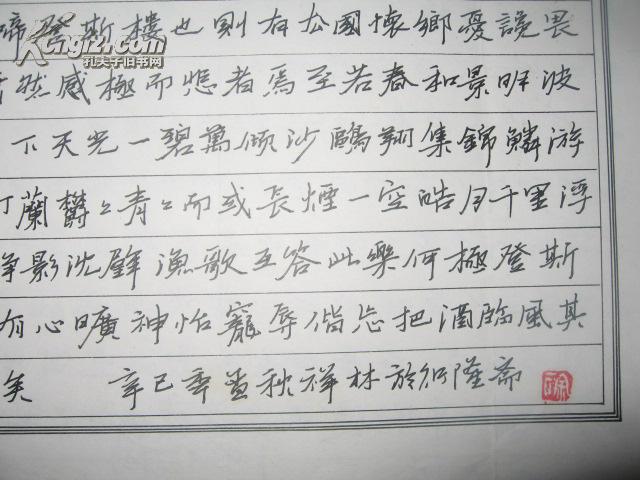 啼登斯樓也則有去國懷鄉憂讒畏
然感極而悲者焉至若春和景明波
下天光一碧萬傾沙鷗翔集錦鱗游
汀蘭欝々青々而或長煙一空皓月千里浮
静影沈璧漁歌互答此樂何極登斯
有心曠神怡寵辱偕忘把酒臨風其
矣 辛巳年孟秋祥林於何隆斋
孔夫子旧书网